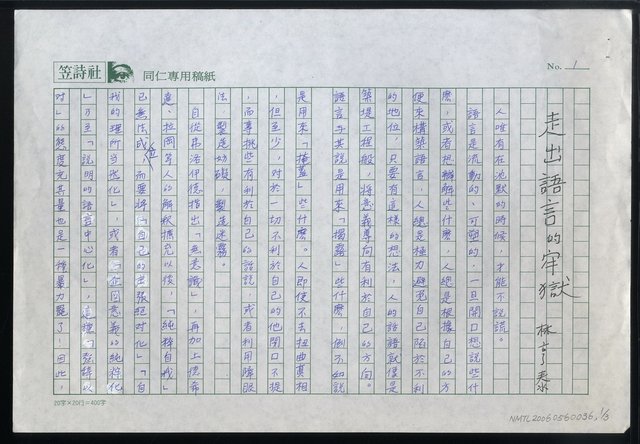 笠詩社 同仁專用稿紙
No. 1
走出語言的牢獄 林亨泰
人唯有在沈默的時候，才能不說謊。
語言是流動的、可塑的，一旦開口想說些什
麼，或者把辯解些什麼，人總是根據自己的方
便來構築語言，人總是極力避免自己陷於不利
的地位，只要有這樣的想法，人的話語就像是
築堤工程般，將意義導向有利於自己的方向。
語言與其說是用來「揭露」些什麼，倒不如說
是用來「掩蓋」些什麼。人即使不去扭曲真相
，但至少，對於一切不利於自己的他閉口不提
，而專挑些有利於自己的話說，或者利用障眼
法，製造妨礙，製造迷霧。
自從弗洛伊德指出「無意識」，再加上德希
達、拉岡等人的解釋擴充以後，「純粹自我」
已無法成立，而要將「自己的主張絕對化」「自
我的理所當然化」，或者「企圖意義的純粹化
」乃至「說明的語言中心化」，這種「強辯以
對」的態度充其量也是一種暴力罷了！因此，
20字×20行=400字
NMTL20060560036, 1/3